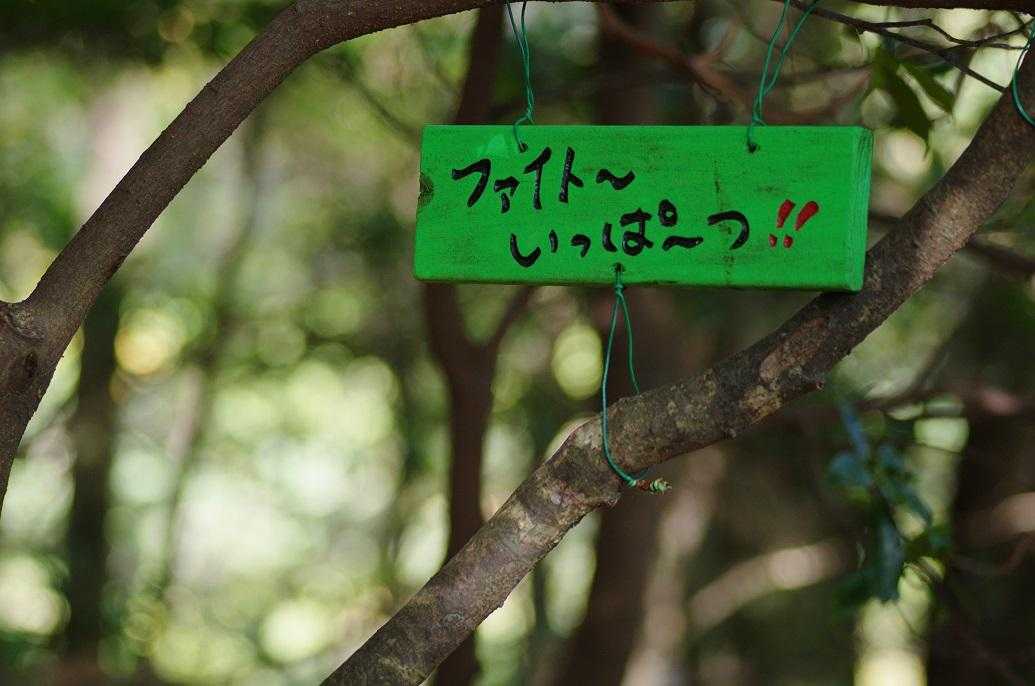 ファイト～
いっぱ～つ!!